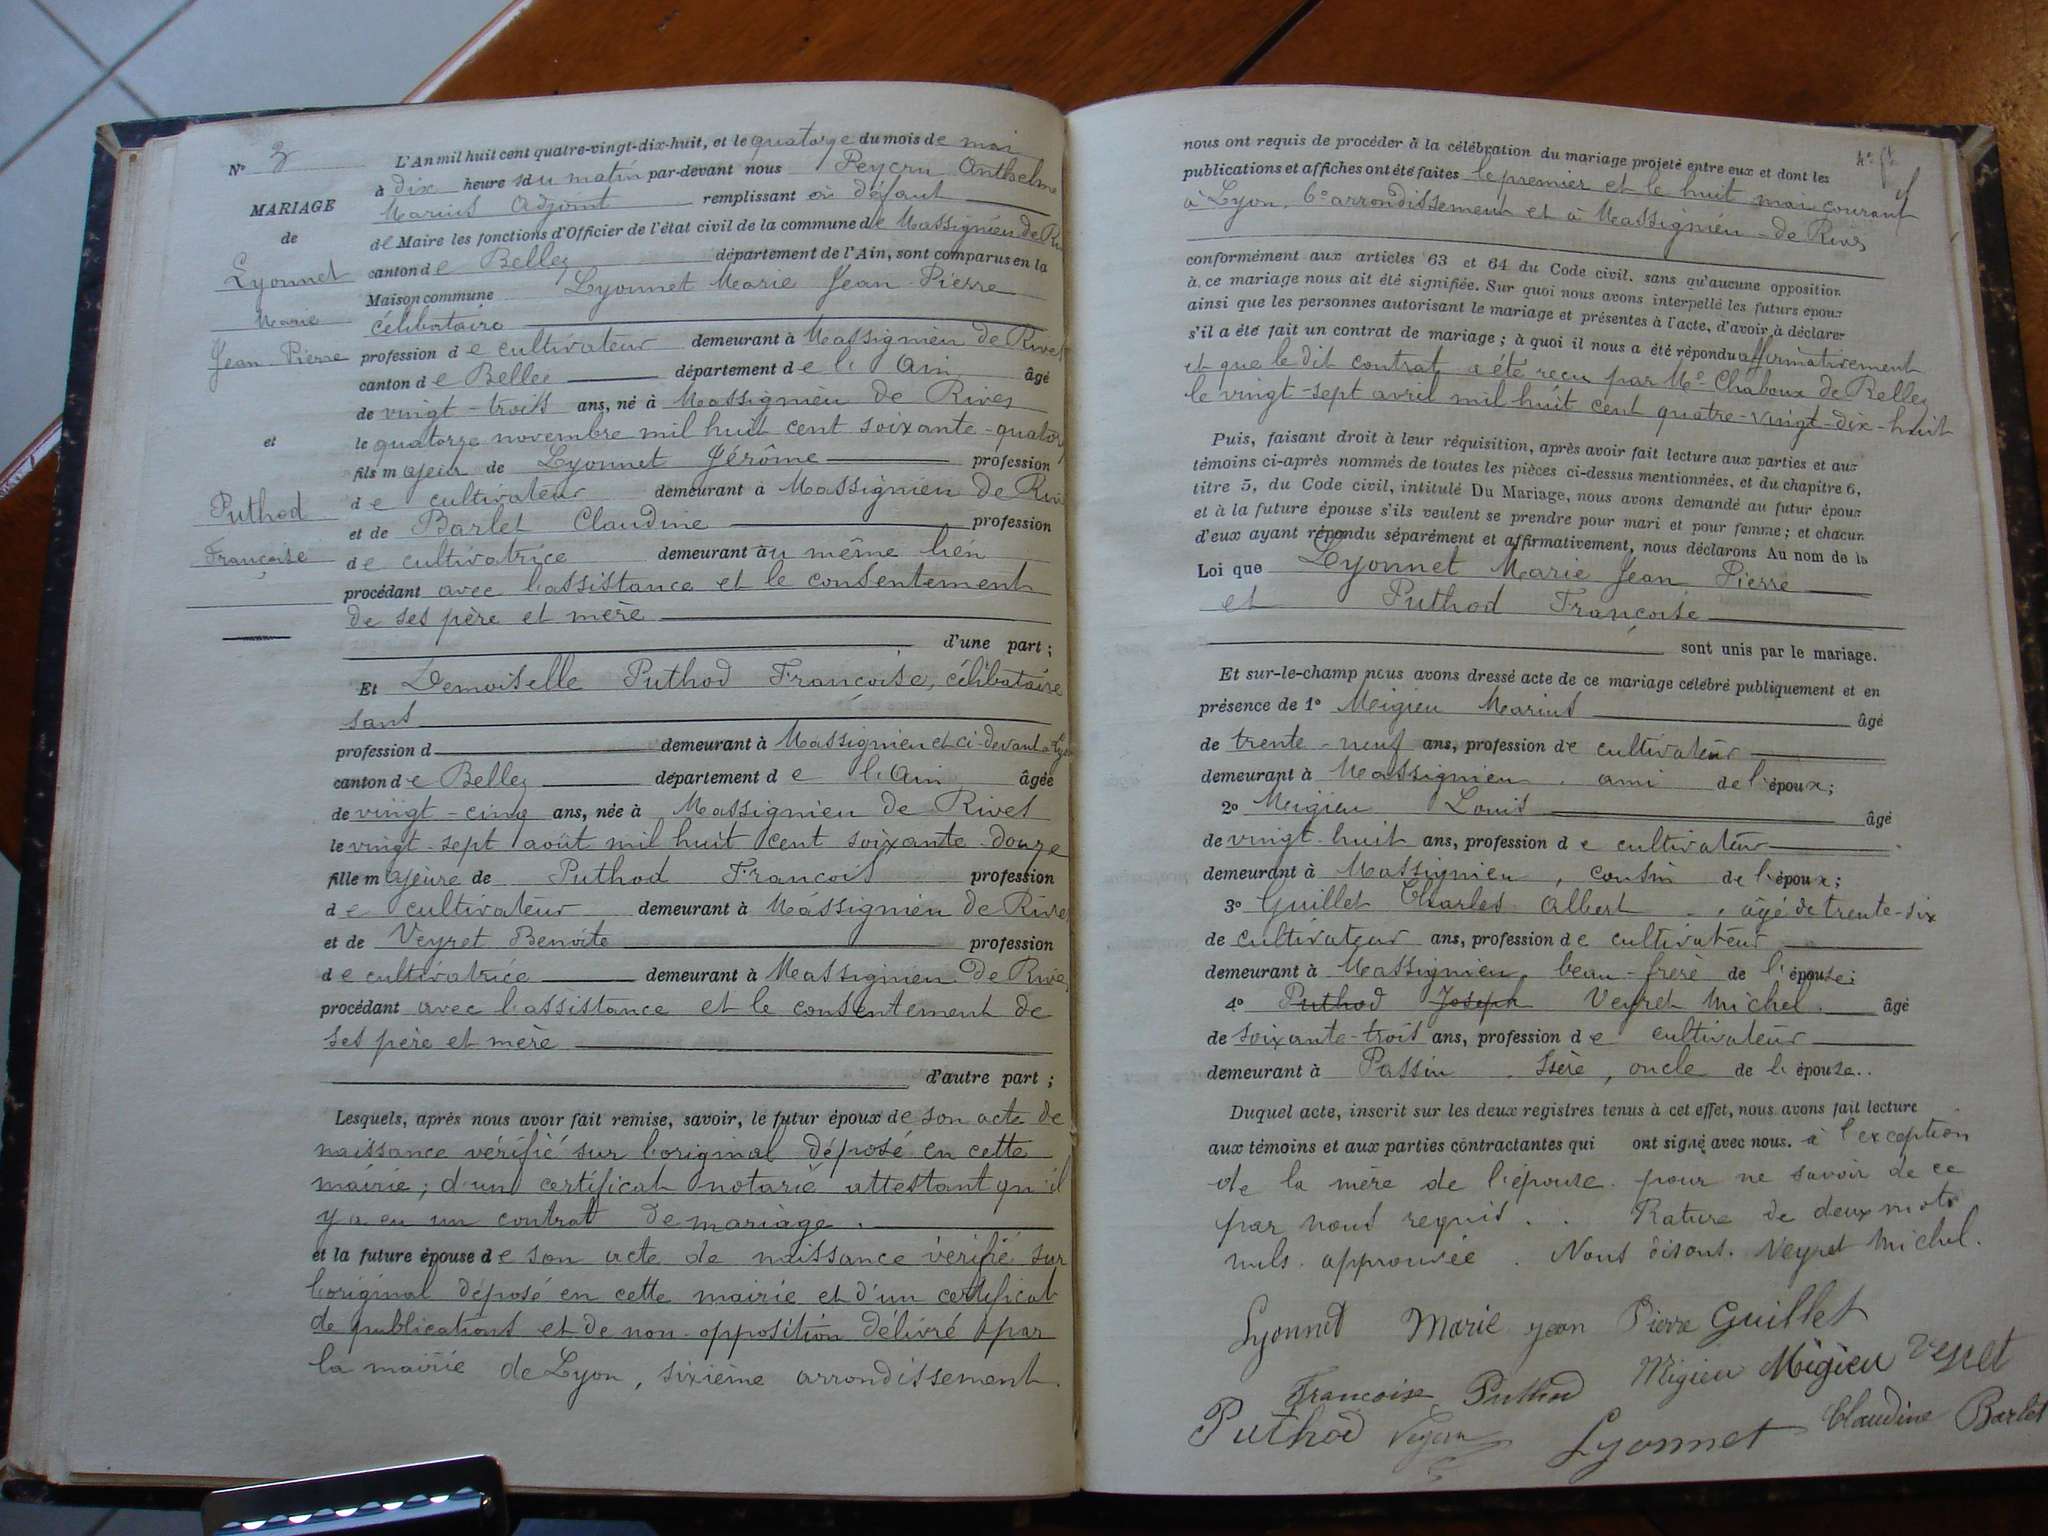 N° 3
MARIAGE
de
Lyonnet
Marie
Jean-Pierre
et
Puthod
Françoise
L'An mil huit cent quatre-vingt-dix-huit, et le quatorze du mois de mai
à dix heures du matin par-devant nous Peycru Anthelme
Marius Adjoint remplissant à défaut
de Maire les fonctions d'Officier de l'état civil de la commune de Massignieu de Ri
canton de Belley département de l'Ain, sont comparus en la
Maison commune Lyonnet Marie Jean-Pierre
célibataire
profession de cultivateur demeurant à Massignieu de Rives
canton de Belley département de l'Ain âgé
de vingt-trois ans, né à Massignieu de Rives
le quatorze novembre mil huit cent soixante-quatorz
fils majeur de Lyonnet Jérôme profession
de cultivateur demeurant à Massignieu de Riv
et de Barlet Claudine profession
de cultivatrice demeurant au même lieu
procédant avec l'assistance et le consentement
de ses père et mère
d'une part ;
Et Demoiselle Puthod Françoise, célibataire
sans
profession d demeurant à Massignieu et ci-devant à Lyon
canton de Belley département de l'Ain âgée
de vingt-cinq ans, née à Massignieu de Rives
le vingt-sept août mil huit cent soixante-douze
fille majeure de Puthod François profession
de cultivateur demeurant à Massignieu de Rives
et de Veyret Benoîte profession
de cultivatrice demeurant à Massignieu de Rive
procédant avec l'assistance et le consentement de
ses père et mère
d'autre part ;
Lesquels, après nous avoir fait remise, savoir, le futur époux de son acte de
naissance vérifié sur l'original déposé en cette
mairie ; d'un certificat notarié attestant qu'il
y a eu un contrat de mariage.
et la future épouse de son acte de naissance vérifié sur
l'original déposé en cette mairie et d'un certificat
de publications et de non-opposition délivré par
la mairie de Lyon, sixième arrondissement.
nous ont requis de procéder à la célébration du mariage projeté entre eux et dont les
publications et affiches ont été faites le premier et le huit mai courant
à Lyon, 6e arrondissement et à Massignieu-de Rives
conformément aux articles 63 et 64 du Code civil. sans qu'aucune opposition
à ce mariage nous ait été signifiée. Sur quoi nous avons interpellé les futurs époux
ainsi que les personnes autorisant le mariage et présentes à l'acte, d'avoir à déclarer
s'il a été fait un contrat de mariage ; à quoi il nous a été répondu affirmativement
et que le dit contrat a été reçu par Me Chaboux de Belley
le vingt-sept avril mil huit cent quatre-vingt-dix-huit
Puis, faisant droit à leur réquisition, après avoir fait lecture aux parties et aux
témoins ci-après nommés de toutes les pièces ci-dessus mentionnées, et du chapitre 6,
titre 5, du Code civil, intitulé Du Mariage, nous avons demandé au futur époux
et à la future épouse s'ils veulent se prendre pour mari et pour femme ; et chacun
d'eux ayant répondu séparément et affirmativement, nous déclarons Au nom de la
Loi que Lyonnet Marie Jean Pierre
et Puthod Françoise
sont unis par le mariage.
Et sur-le-champ nous avons dressé acte de ce mariage célébré publiquement et en
présence de 1° Meigieu Marius âgé
de trente-neuf ans, profession de cultivateur
demeurant à Massignieu, ami de l'époux ;
2° Meigieu Louis âgé
de vingt-huit ans, profession de cultivateur
demeurant à Massignieu, cousin de l'époux ;
3° Guillet Charles Albert, âgé de trente-six
de cultivateur ans, profession de cultivateur
demeurant à Massignieu, beau-frère de l'épouse ;
4° Puthod Joseph Veyret Michel. âgé
de soixante-trois ans, profession de cultivateur
demeurant à Passin Isère, oncle de l'épouse.
Duquel acte, inscrit sur les deux registres tenus à cet effet, nous avons fait lecture
aux témoins et aux parties contractantes qui ont signé avec nous. à l'exception
de la mère de l'épouse. pour ne savoir de ce
par nous requis. Rature de deux mots
nuls. approuvée. Nous disons. Veyret Michel.
Lyonnet Marie jean Pierre Guillet
Françoise Puthod Migieu Migieu Veyret
Puthod Lyonnet Claudine Barlet